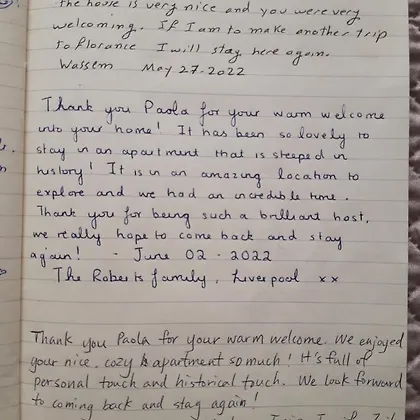 the house is very nice and you were very
welcoming. If I am to make another trip
to florance I will stay here again.
Wassem May 27-2022
Thank you Paola for your warm welcome
into your home! It has been so lovely to
stay in an apartment that is steeped in
history! It is in an amazing location to
explore and we had an incredible time.
Thank you for being such a brilliant host,
we really hope to come back and stay
again! - June 02 - 2022
The Roberts family, Liverpool xx
Thank you Paola for your warm welcome. We enjoyed
your nice, cozy apartment so much! It's full of
personal touch and historical touch. We look forward
to coming back and stay again!